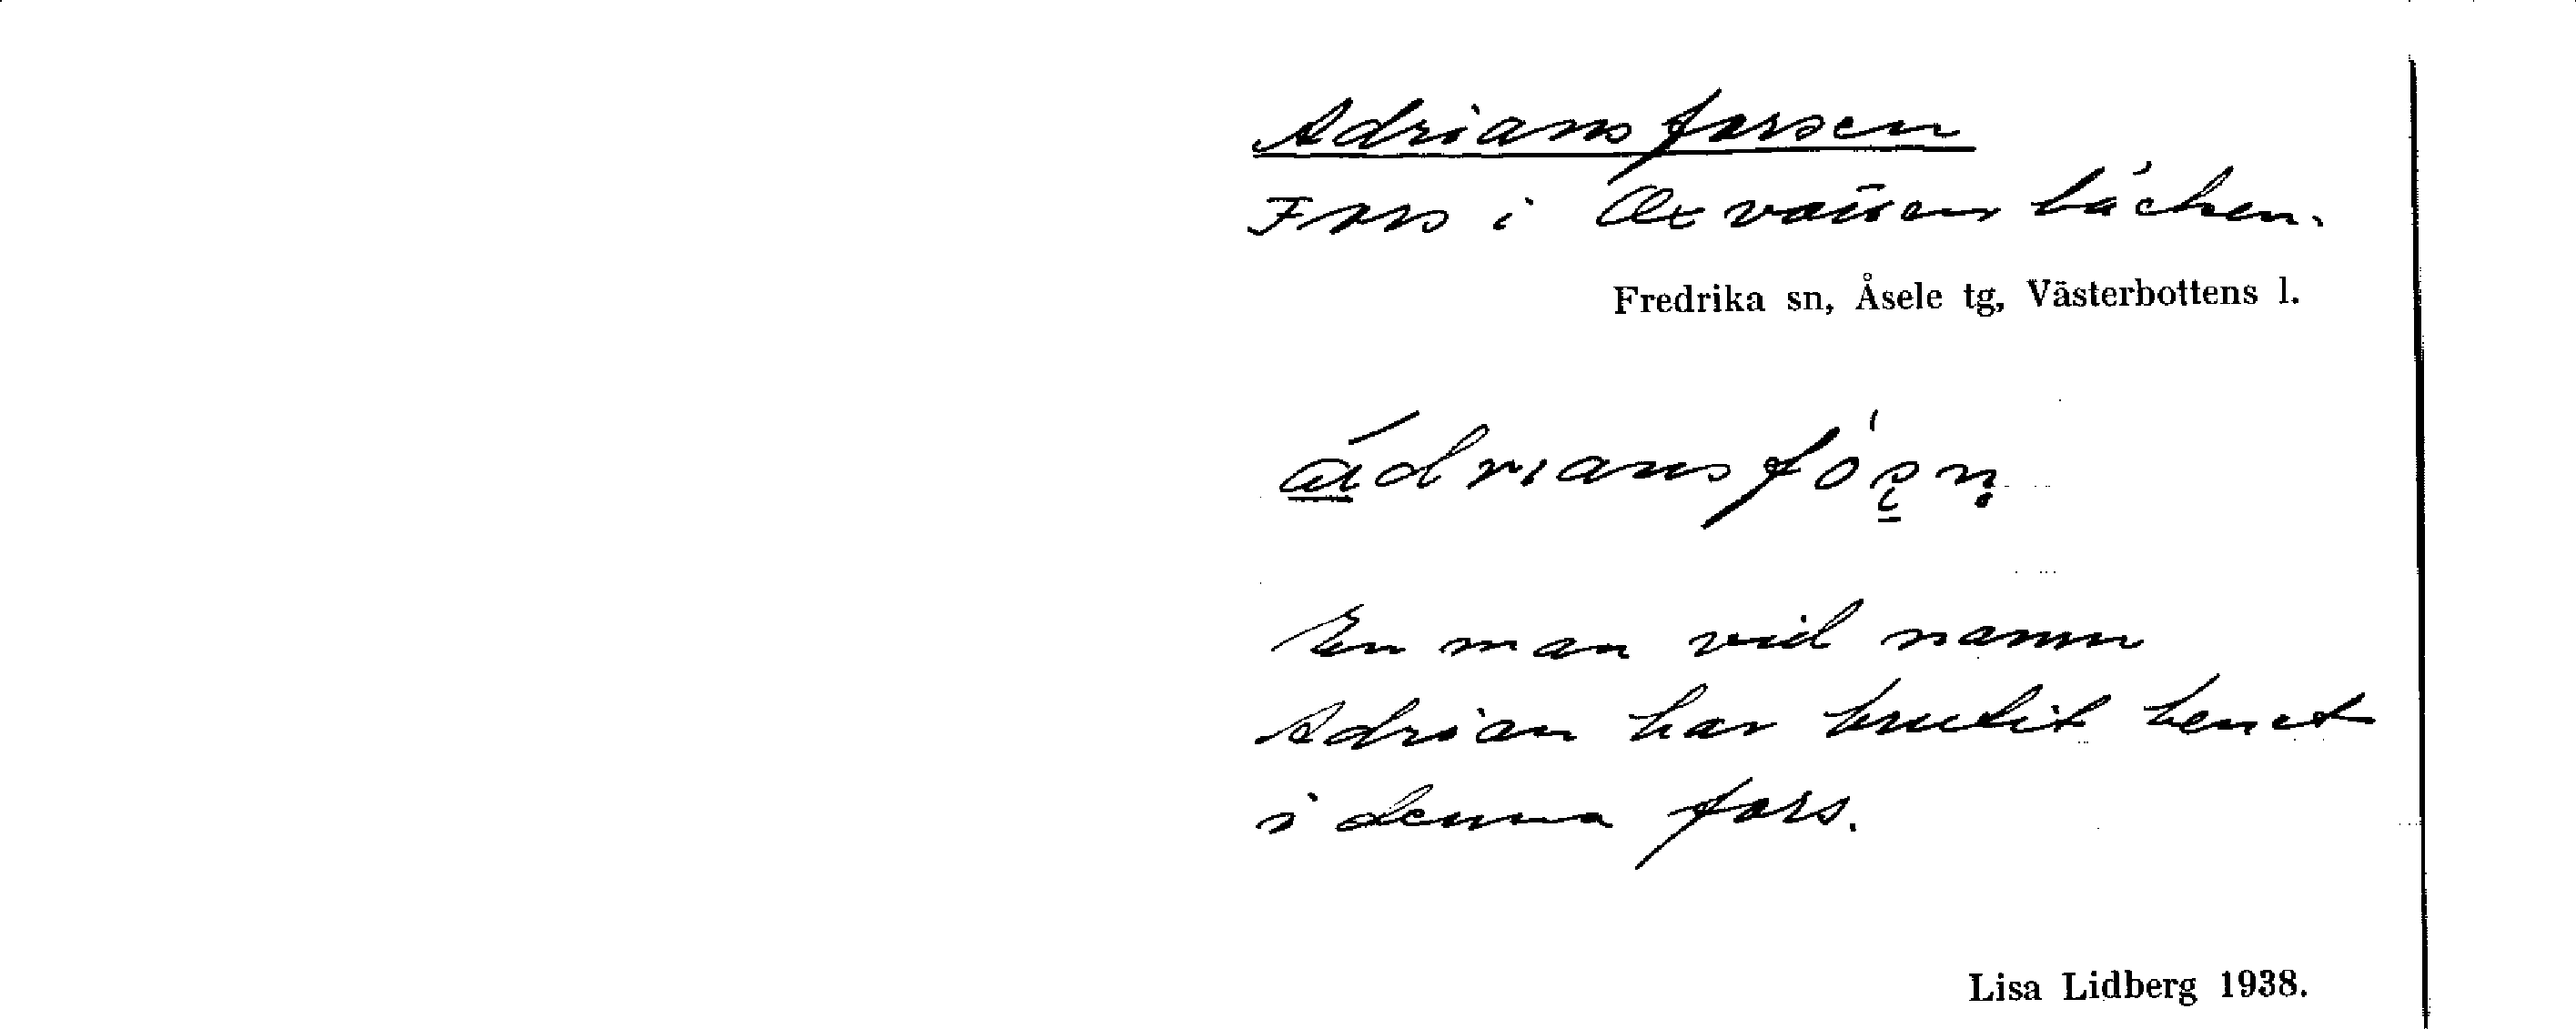 Adriansforsen
Fors i Oxvattenbäcken.
Fredrika sn, Åsele tg, Västerbottens l.
En man vid namn
Adrian har brutit benet
i denna fors.
Lisa Lidberg 1938.